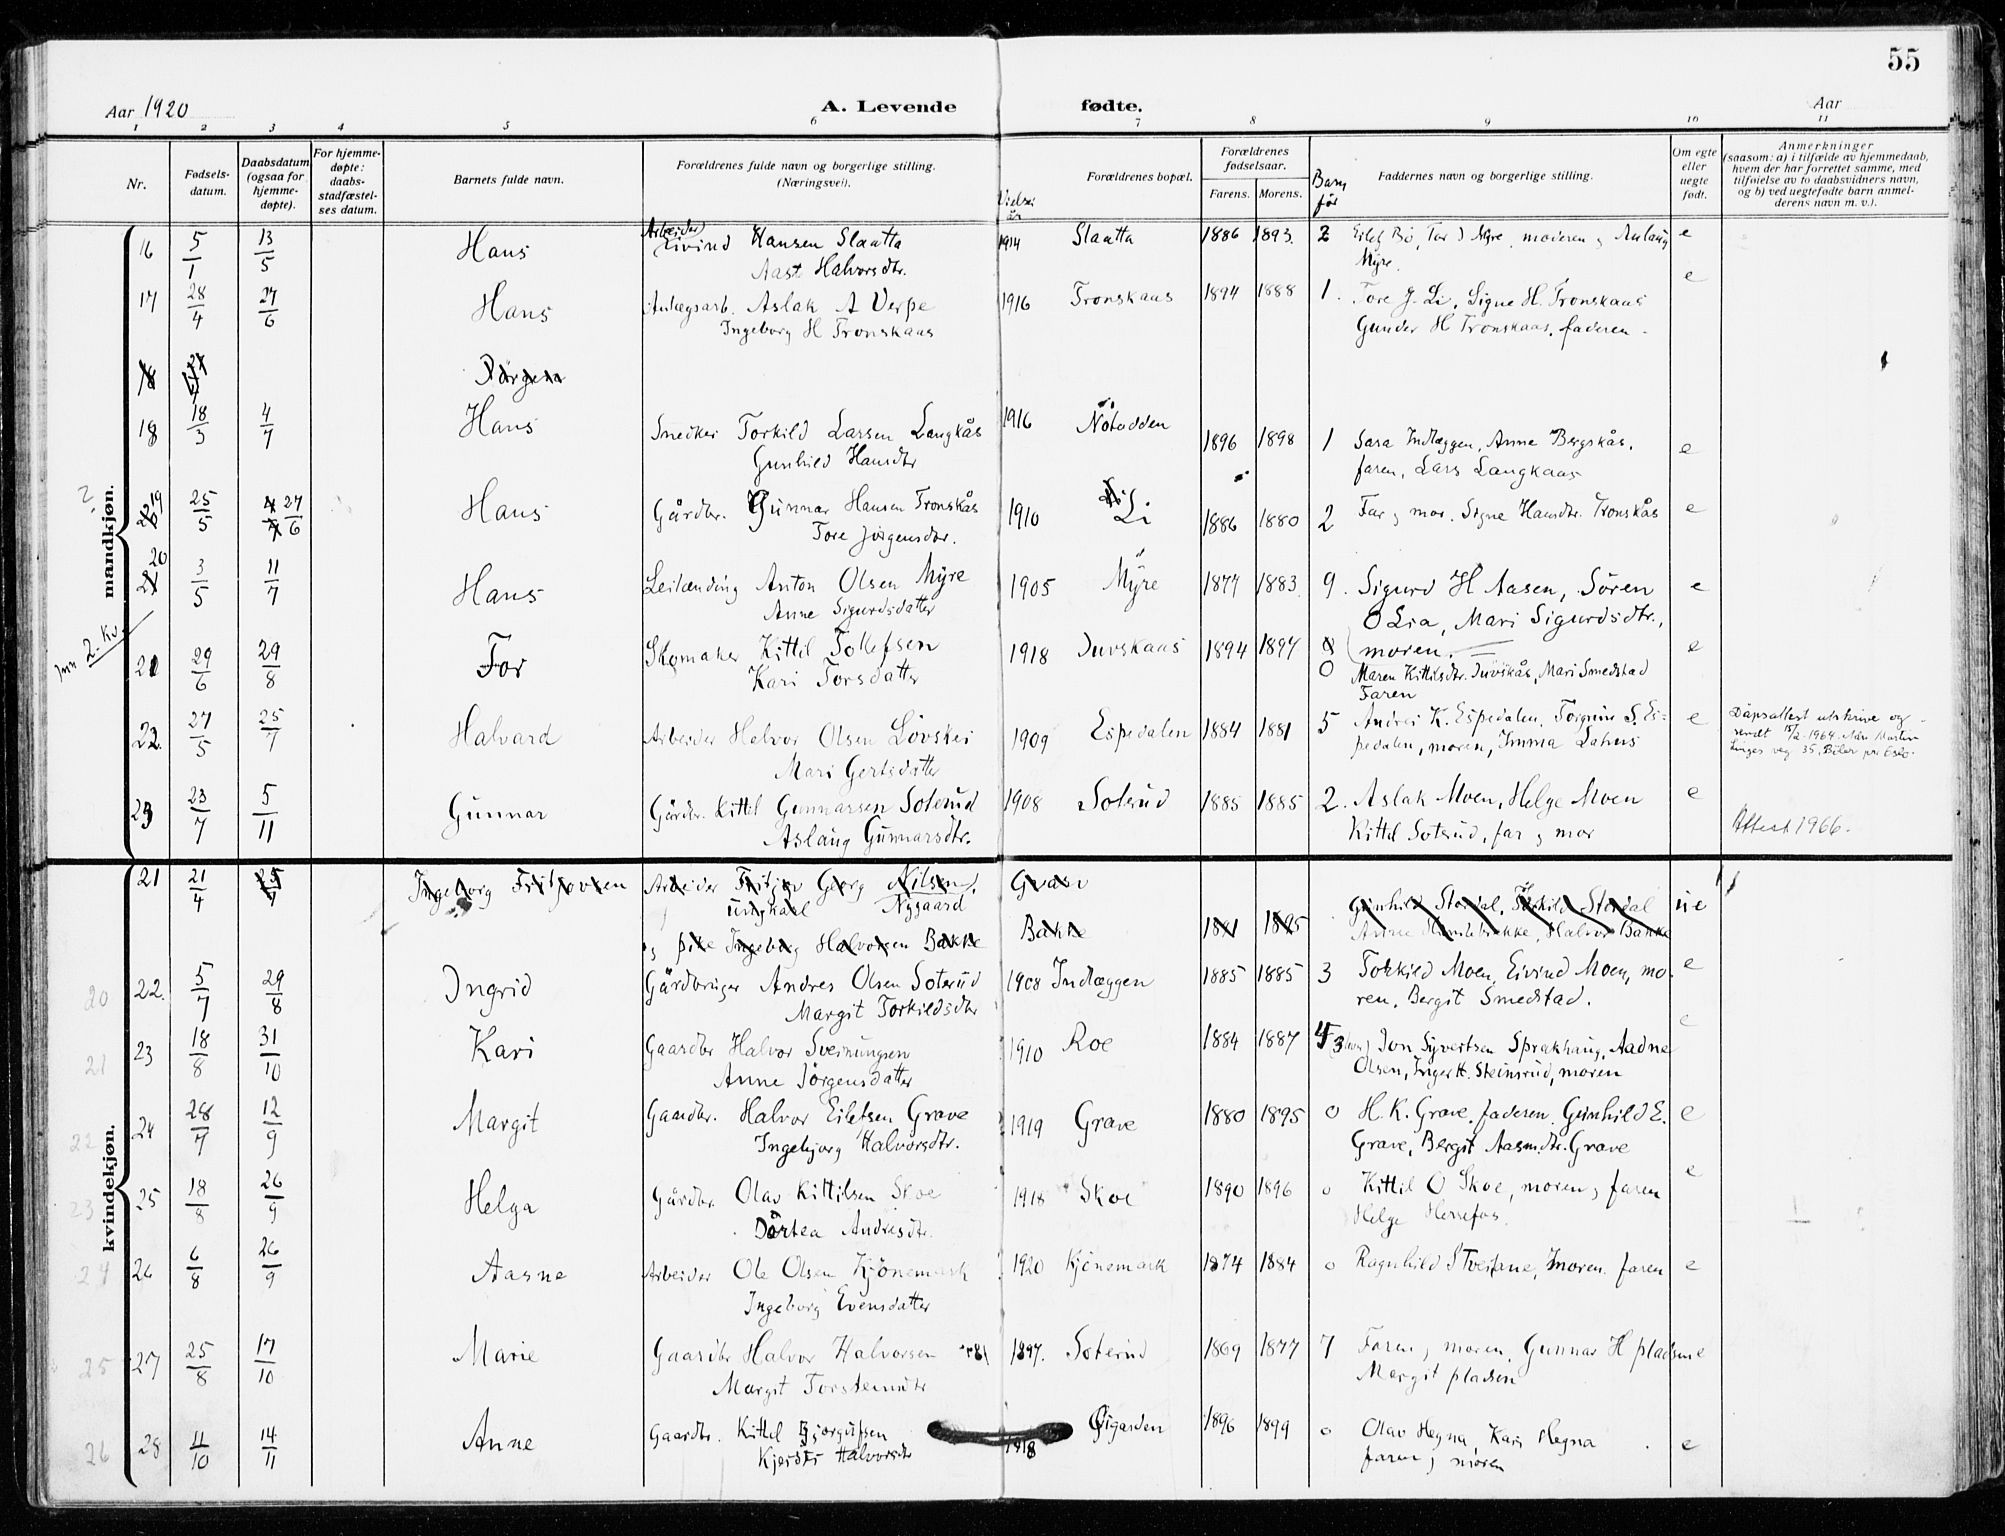 55
Aar 1920
A. Levende fødte.
Aar
1 2 3 4 5 6 7 8 9 10 11
Nr.
Fødsels-
datum.
Daabsdatum
(ogsaa for
hjemme-
døpte).
For hjemme-
døpte:
daabs-
stadfæstel-
ses datum.
Barnets fulde navn.
Forældrenes fulde navn og borgerlige stilling.
(Næringsvei).
Vielses
år
Forældrenes bopæl.
Forældrenes
fødselsaar.
Farens. Morens.
Barn
før
Faddernes navn og borgerlige stilling.
Om egte
eller
uegte
født.
Anmerkninger
(saasom: a) i tilfælde av hjemmedaab,
hvem der har forrettet samme, med
tilføielse av to daabsvidners navn,
og b) ved uegtefødte barn anmel-
derens navn m. v.).
mandkjøn.
16 5/1 13/5 Hans Arbeider Eivind Hansen Slaatta 1914 Slaatta 1886 1893. 2 Eilef Bø, Tor J Myre, moderen, Aslaug e
Aast Halvorsdtr. Myre.
17 28/4 27/6 Hans Anlægsarb. Aslak A Verpe 1916 Tronskaas 1894 1888 1. Tore J. Li, Signe H. Tronskaas e
Ingeborg H Tronskaas Gunder H Tronskaas, faderen.
Jørgen
18 18/3 4/7 Hans Snedker Torkild Larsen Langkås 1916 Notodden 1896 1898 1 Sara Indlæggen, Anne Bergskås, e
Gunhild Hansdtr faren, Lars Langkaas
19 25/5 27/6 Hans Gårdbr. Gunnar Hansen Tronskås 1910 Li 1886 1880 2 Far, mor. Signe Hansdtr. Tronskås e
Tore Jørgensdtr.
20 3/5 11/7 Hans Leilænding Anton Olsen Myre 1905 Myre 1877 1883 9. Sigurd H Aasen, Søren e
Anne Sigurdsdatter O Lia, Mari Sigurdsdtr.,
moren.
21 29/6 29/8 Tor Skomaker Kittil Tollefsen 1918 Juvskaas 1894 1897 0 Maren Kittilsdtr. Juvskås, Mari Smedstad e
Kari Torsdatter Faren
22. 27/5 25/7 Halvard Arbeider Halvor Olsen Løvskei 1909 Espedalen 1884 1881 5 Andrei K. Espedalen, Torgrim S. Es- e Dåpsattest utskrive og
Mari Gertsdatter pedalen, moren, Imma Lahus sendt 15/2-1964. Adr: Martin
Linges veg 35, Bøler pr Oslo.
23 23/7 5/11 Gunnar Gårdbr. Kittil Gunnarsen Soterud 1908 Soterud 1885 1885 2. Aslak Moen, Helge Moen e
Aslaug Gunnarsdtr. Kittil Soterud, far, mor Attest 1966.
kvindekjøn.
21 21/4 25/7 Ingeborg Fritjovsen Arbeider Fritjov Georg Nilsen,
ungkarl Nygaard
og pike Ingeborg Halvorsen Bakke Bakke 1881 1895 Gunhild Stordal, Torkild Stordal ue
Halvor Bakke
20 22. 5/7 29/8 Ingrid Gårdbruger Andres Olsen Soterud 1908 Indlæggen 1885 1885 3 Torkild Moen, Eivind Moen, mo- e
Margit Torkildsdtr ren, Bergit Smedstad.
21 23 18/8 31/10 Kari Gaardbr Halvor Sveinungsen 1910 Roe 1884 1887 Jon Syvertsen Sprakhaug, Aadne e
Anne Jørgensdatter Olsen, Inger H. Steinsrud, moren
22 24 28/7 12/9 Margit Gaardbr. Halvor Eilefsen Grave 1919 Grave 1880 1895 0 H. K. Grave, faderen, Gunhild E. e
Ingebjørg Halvorsdtr. Grave, Bergit Aasm.dtr. Grave
23 25 18/8 26/9 Helga Gårdbr. Olav Kittilsen Skoe 1918 Skoe 1890 1896 0 Kittil O Skoe, moren, faren e
Dårtea Andresdtr. Helge Herrefos.
24 26 6/8 26/9 Aasne Arbeider Ole Olsen Kjønemark 1920 Kjønemark 1874 1884 0 Ragnhild S Tveitane, moren, faren e
Ingeborg Evensdatter
25 27 25/8 17/10 Marie Gaardbr Halvor Halvorsen 1897. Soterud 1869 1877 7 Faren, moren, Gunnar H pladsen e
Margit Torsteinsdtr Margit pladsen
26 28 11/10 14/11 Anne Gaardbr. Kittel Bjørgufsen 1918 Øigarden 1896 1899 0 Olav Hegna, Kari Hegna e
Kjersti Halvorsdtr faren, moren